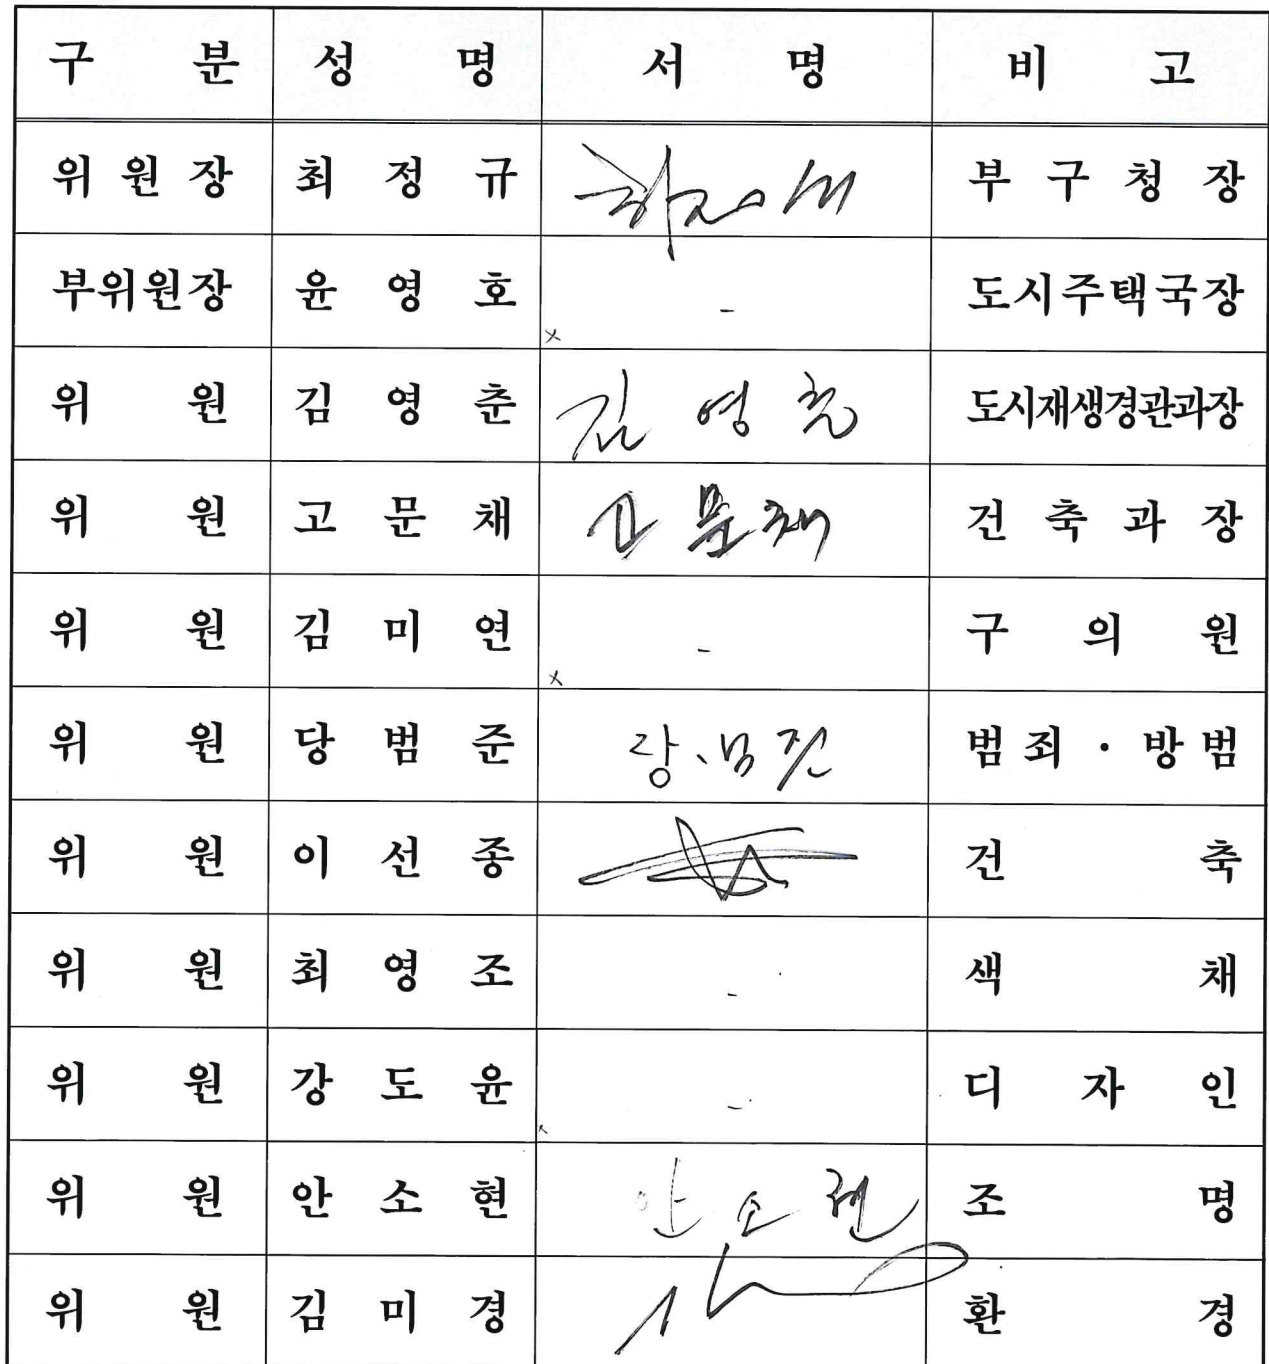 구 분 성 명 서 명 비 고
위 원 장 최 정 규 부 구 청 장
부위원장 윤 영 호 - 도시주택국장
위 원 김 영 춘 김 영 춘 도시재생경관과장
위 원 고 문 채 고 문 채 건 축 과 장
위 원 김 미 연 - 구 의 원
위 원 당 범 준 당 범 준 범 죄 · 방 범
위 원 이 선 종 건 축
위 원 최 영 조 - 색 채
위 원 강 도 윤 - 디 자 인
위 원 안 소 현 안 소 현 조 명
위 원 김 미 경 환 경